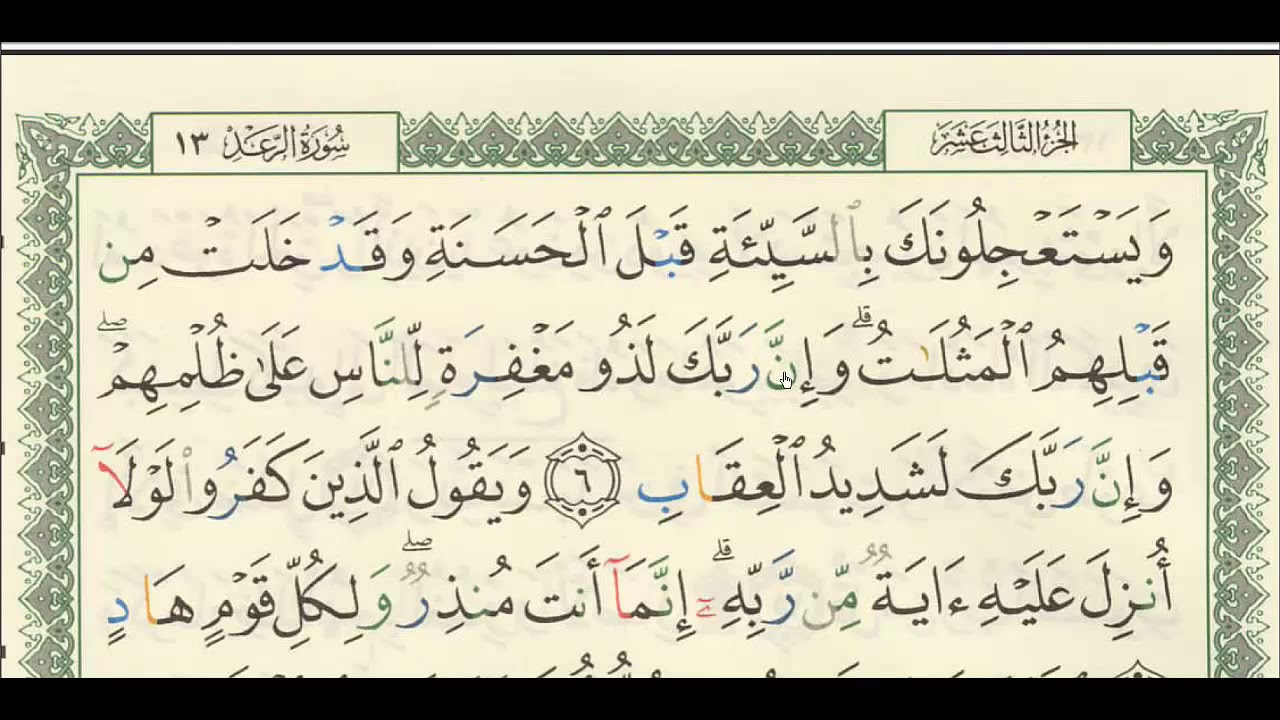 الجزء الثالث عشر
سورة الرعد ١٣
وَيَسْتَعْجِلُونَكَ بِٱلسَّيِّئَةِ قَبْلَ ٱلْحَسَنَةِ وَقَدْ خَلَتْ مِن
قَبْلِهِمُ ٱلْمَثُلَٰتُ ۗ وَإِنَّ رَبَّكَ لَذُو مَغْفِرَةٍ لِّلنَّاسِ عَلَىٰ ظُلْمِهِمْ ۖ
وَإِنَّ رَبَّكَ لَشَدِيدُ ٱلْعِقَابِ ٦ وَيَقُولُ ٱلَّذِينَ كَفَرُوا۟ لَوْلَآ
أُنزِلَ عَلَيْهِ ءَايَةٌ مِّن رَّبِّهِۦٓ ۗ إِنَّمَآ أَنتَ مُنذِرٌ ۖ وَلِكُلِّ قَوْمٍ هَادٍ